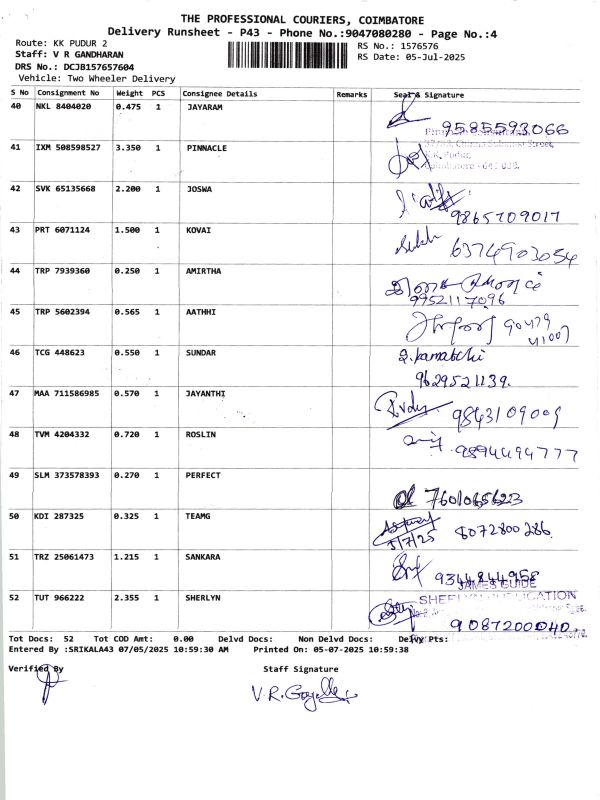 THE PROFESSIONAL COURIERS, COIMBATORE
Delivery Runsheet - P43 - Phone No.:9047080280 - Page No.:4
Route: KK PUDUR 2
RS No.: 1576576
Staff: V R GANDHARAN
RS Date: 05-Jul-2025
DRS No.: DCJB157657604
Vehicle: Two Wheeler Delivery
S No Consignment No Weight PCS Consignee Details Remarks Seal & Signature
40 NKL 8404020 0.475 1 JAYARAM
9585593066
41 IXM 508598527 3.350 1 PINNACLE
42 SVK 65135668 2.200 1 JOSWA
9865709017
43 PRT 6071124 1.500 1 KOVAI
6374903054
44 TRP 7939360 0.250 1 AMIRTHA
9952117096
45 TRP 5602394 0.565 1 AATHHI
46 TCG 448623 0.550 1 SUNDAR
9629521139.
47 MAA 711586985 0.570 1 JAYANTHI
9843109009
48 TVM 4204332 0.720 1 ROSLIN
9894494777
49 SLM 373578393 0.270 1 PERFECT
50 KDI 287325 0.325 1 TEAMG
8072800286.
5/7/25
51 TRZ 25061473 1.215 1 SANKARA
9344844958
JAMES GUIDE
52 TUT 966222 2.355 1 SHERLYN
9087200040.
Tot Docs: 52 Tot COD Amt: 0.00 Delvd Docs: Non Delvd Docs: Delvy Pts:
Entered By :SRIKALA43 07/05/2025 10:59:30 AM Printed On: 05-07-2025 10:59:38
Verified By Staff Signature